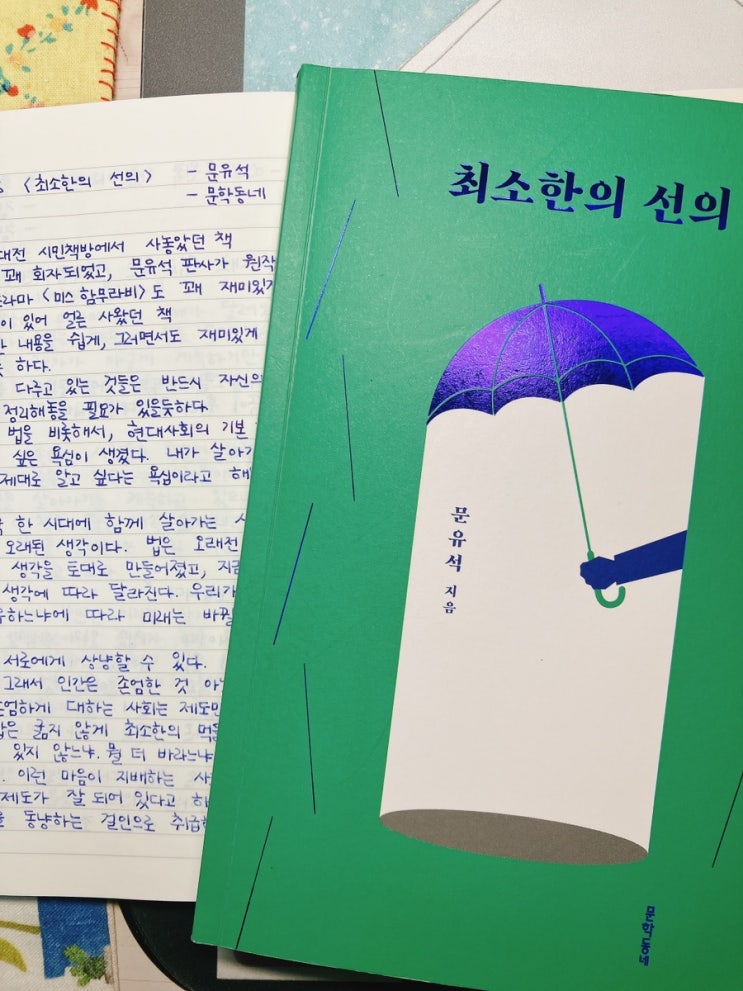 <최소한의 선의> - 문유석
- 문학동네
대전 시민책방에서 사놓았던 책
꽤 회자되었고, 문유석 판사가 원작
드라마 <미스 함무라비>도 꽤 재미있게
이 있어 얼른 사왔던 책
내용을 쉽게, 그러면서도 재미있게
하다.
다주고 있는 것들은 반드시 자신의
정리해놓을 필요가 있을듯하다.
법을 비롯해서, 현대사회의 기본
싶은 욕심이 생겼다. 내가 살아가
제대로 알고 싶다는 욕심이라고 해
한 시대에 함께 살아가는
오래된 생각이다. 법은 오래전
생각을 토대로 만들어졌고, 지금
생각에 따라 달라진다. 우리가
하느냐에 따라 미래는 바뀔
서로에게 상냥할 수 있다.
그래서 인간은 존엄한 것
존엄하게 대하는 사회는 제도만
굶지 않게 최소한의
있지 않느냐. 뭘 더 바라느냐
이런 마음이 지배하는
제도가 잘 되어 있다고
동냥하는 걸인으로 취급
최소한의 선의
문유석 지음
문학동네